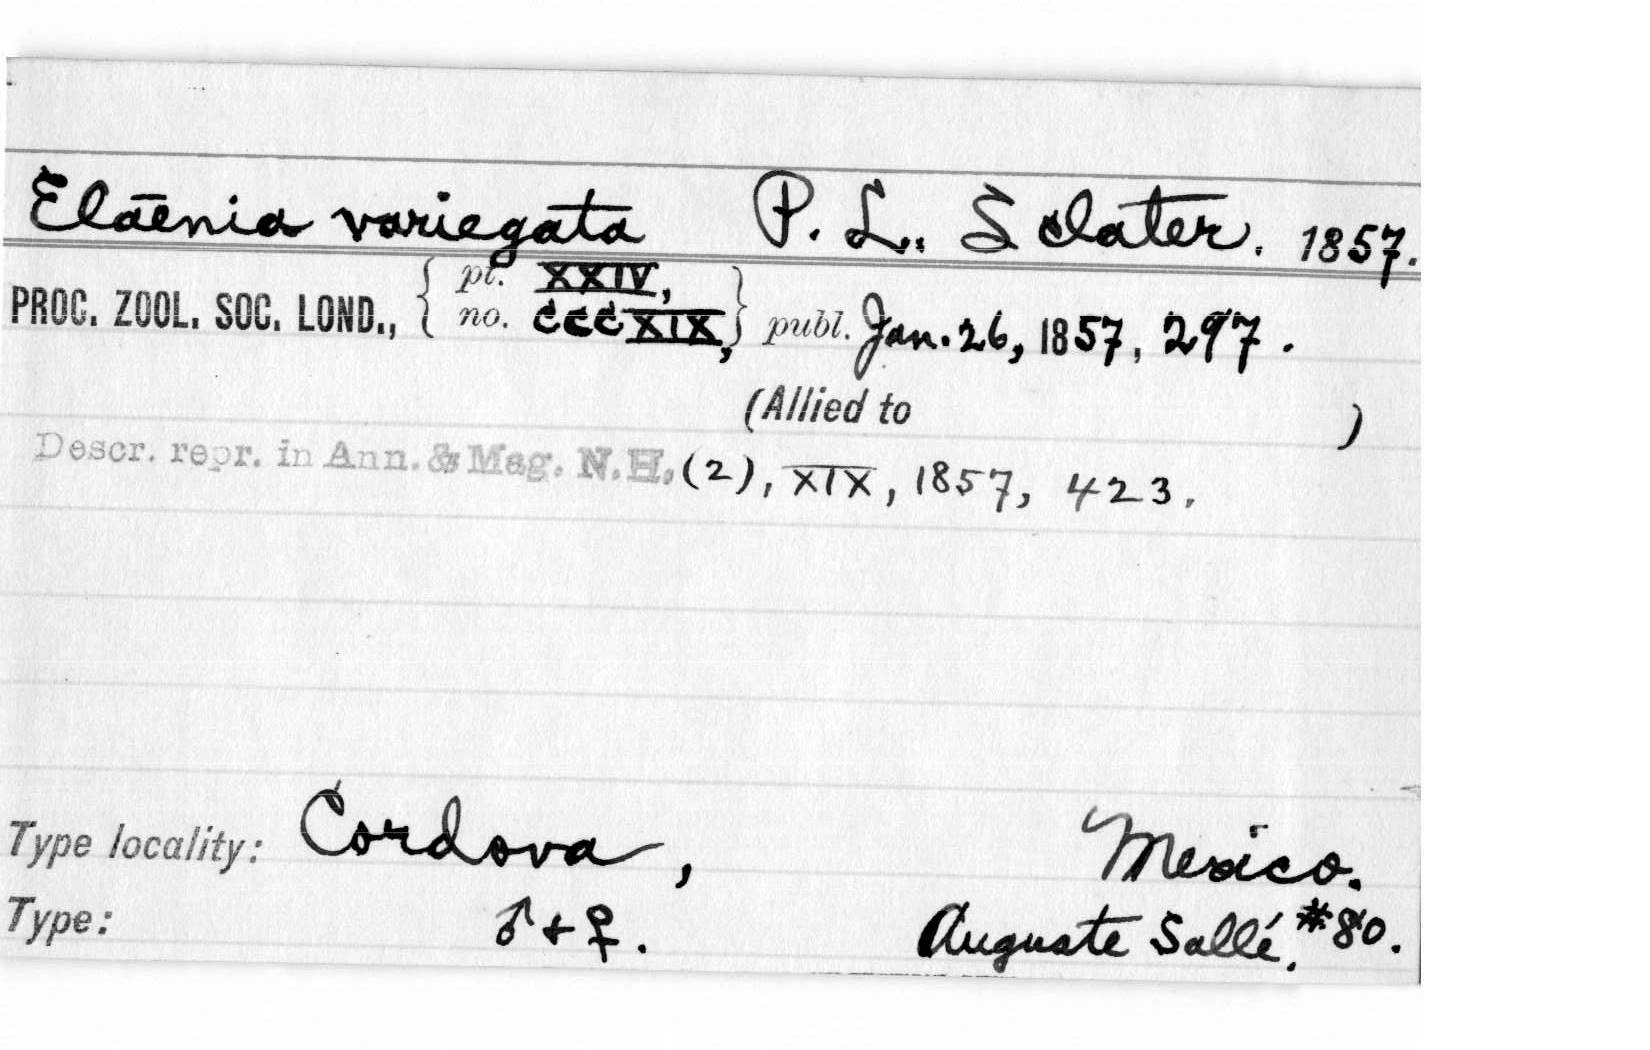 Elāenia variegata P. L. Sclater. 1857.
PROC. ZOOL. SOC. LOND., { pt. XXIV, no. CCCXIX, } publ. Jan. 26, 1857, 297.
(Allied to )
Descr. repr. in Ann. & Mag. N.H. (2), XIX, 1857, 423.
Type locality: Cordova, Mexico.
Type: ♂ + ♀. Auguste Sallé, #80.